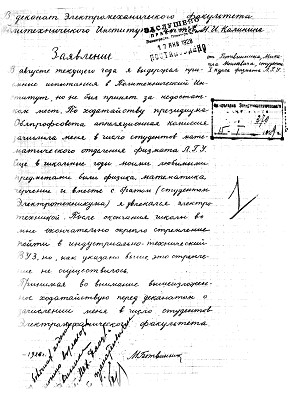 В деканат Электромеханического факультета
Политехнического Института им. М. И. Калинина
ЗАСЛУШЕНО
17 ЯНВ 1928
Заявление
от Ботвинника, Миха-
ила Моисеевича, студента
I курса физмата Л.Г.У.
В августе текущего года я выдержал при-
емные испытания в Политехнический Ин-
ститут, но не был принят за недостат-
ком мест. По ходатайству президиума
Облпрофсовета апелляционная комиссия
зачислила меня в число студентов мате-
матического отделения физмата Л.Г.У.
Еще в школьные годы моими любимыми
предметами были физика, математика,
черчение и вместе с братом (студентом
Электротехникума) я увлекался электро-
техникой. После окончания школы во
мне окончательно окрепло стремление
пойти в индустриально-технический
ВУЗ, но, как указано выше, это стремле-
ние не осуществилось.
Принимая во внимание вышеизложен-
ное ходатайствую перед деканатом о
зачислении меня в число студентов
Электромеханического факультета.
М. Ботвинник
1